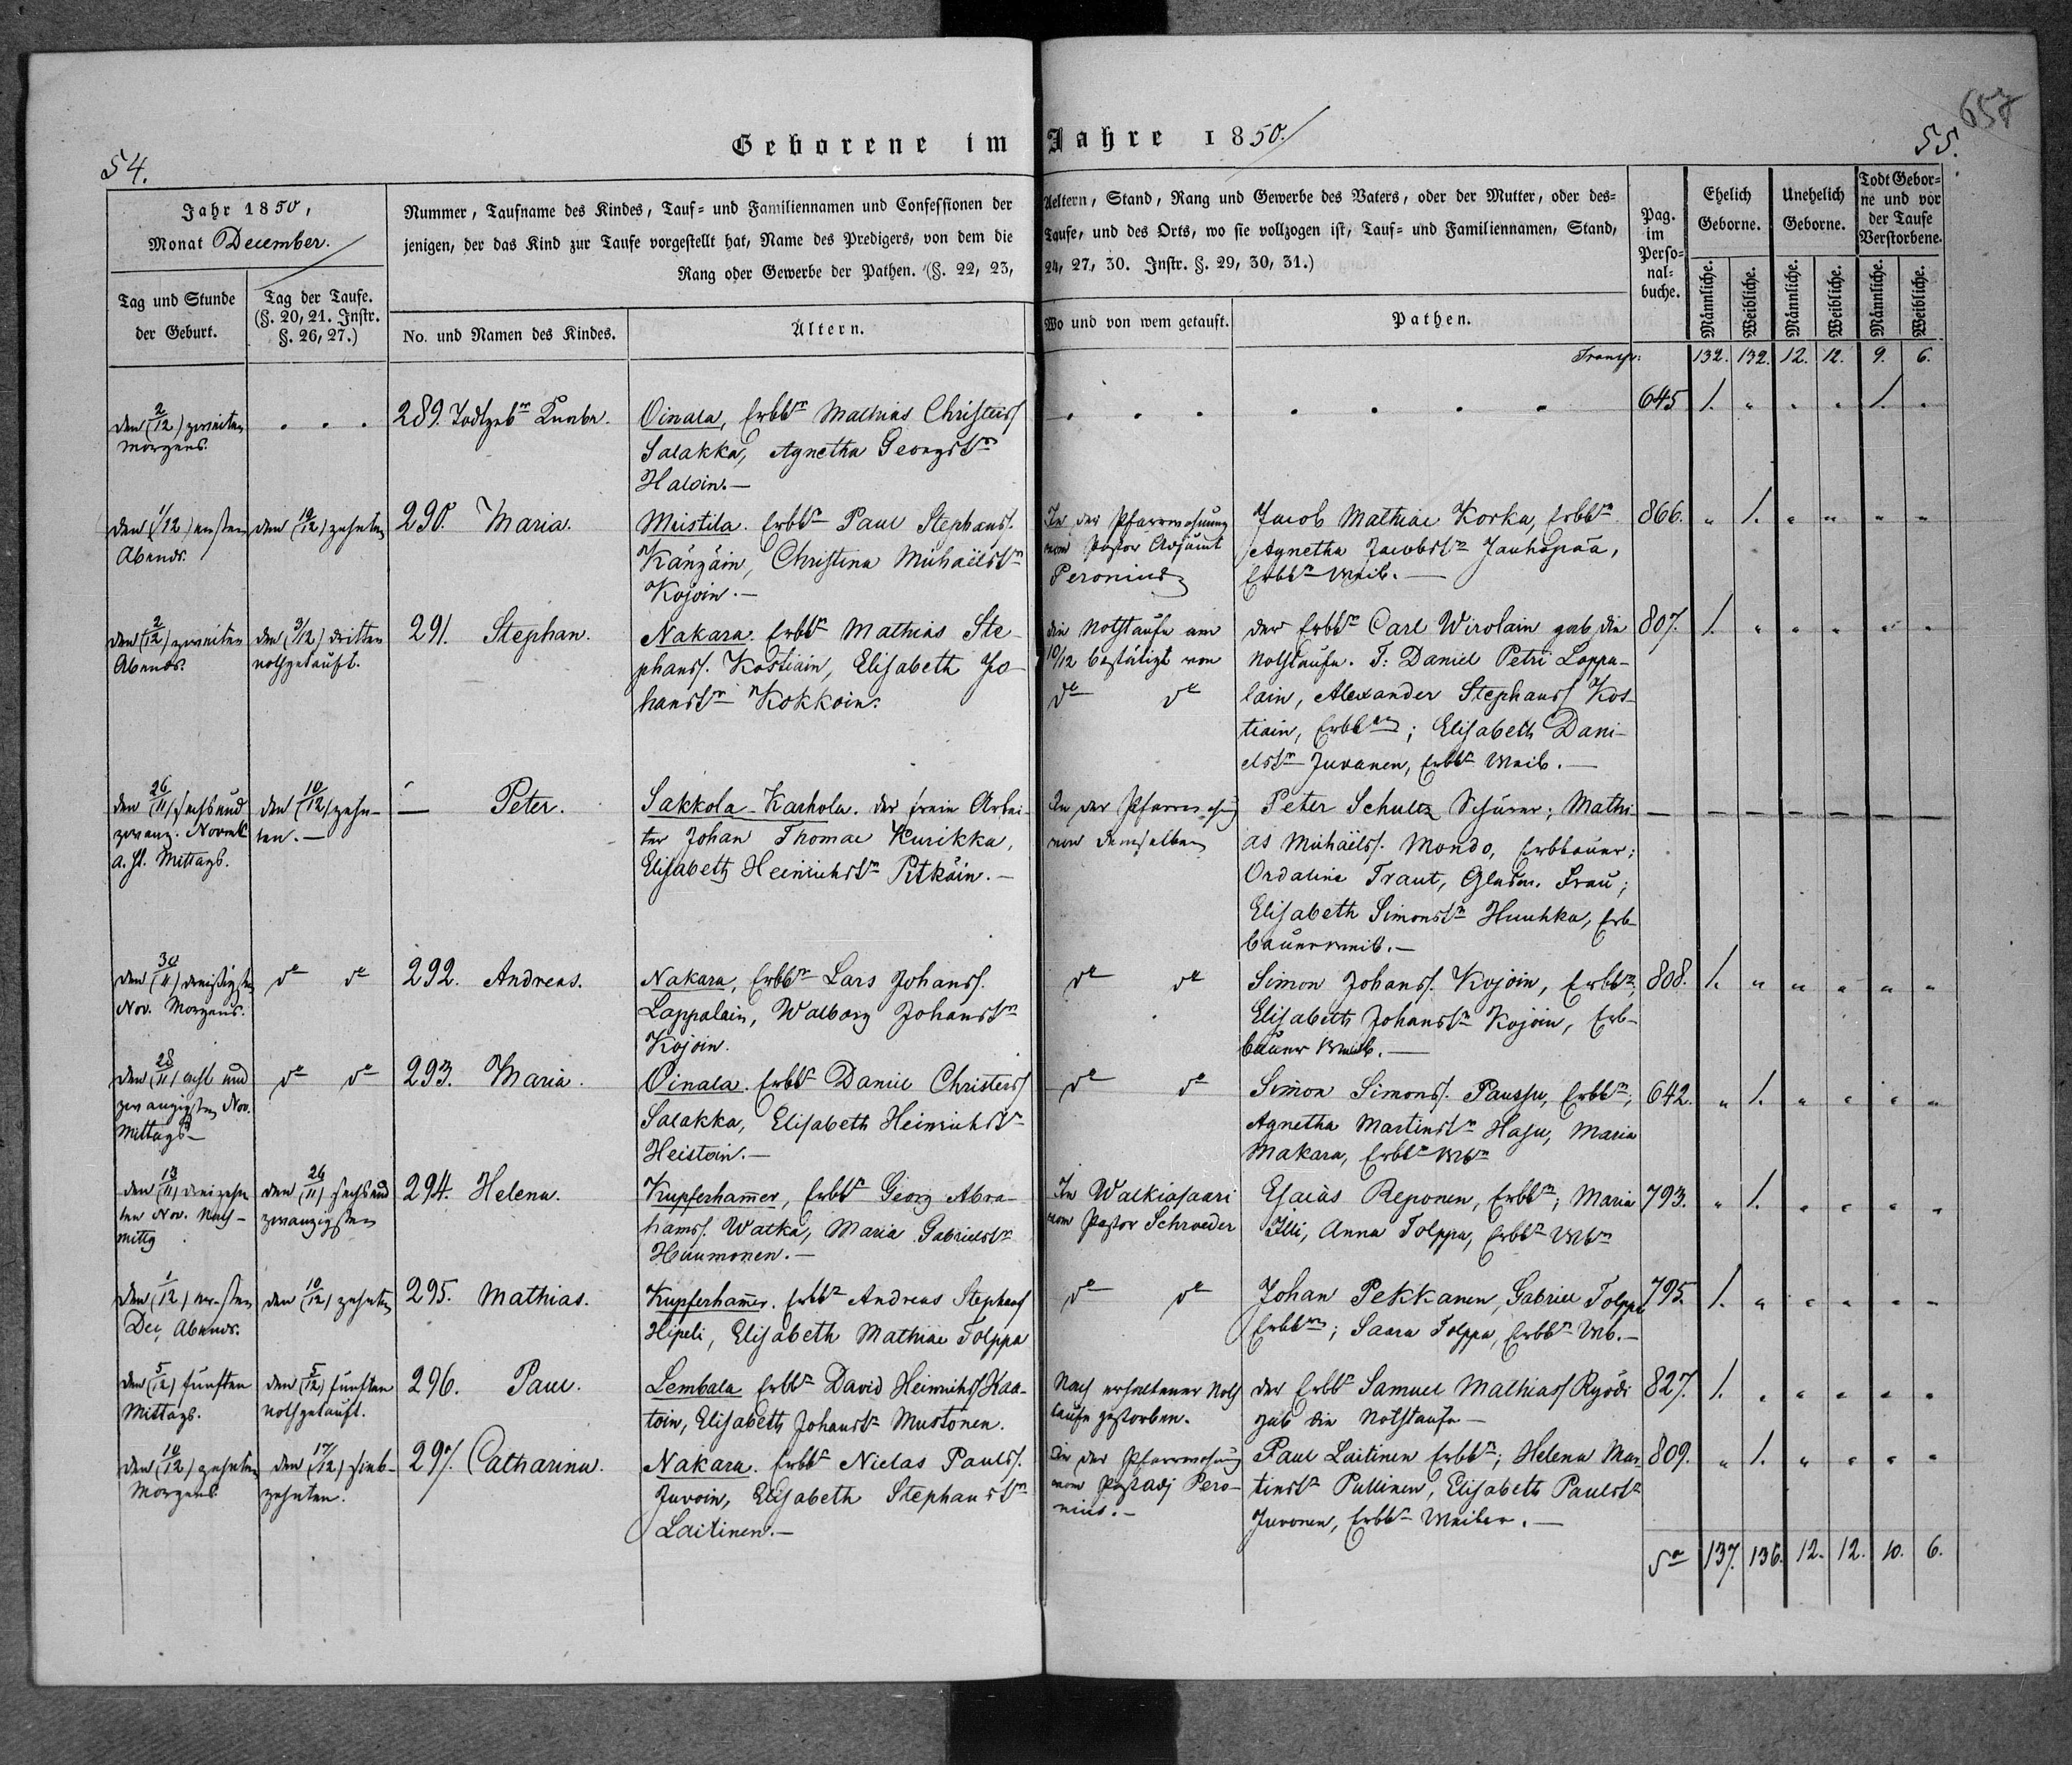 657
54.
Geborene im Jahre 1850.
55.
Jahr 1850,
Monat December.
Tag und Stunde
der Geburt.
Tag der Taufe.
(§. 20, 21. Instr.
§. 26, 27.)
Nummer, Taufname des Kindes, Tauf- und Familiennamen und Confessionen der
jenigen, der das Kind zur Taufe vorgestellt hat, Name des Predigers, von dem die
Rang oder Gewerbe der Pathen. (§. 22, 23,
No. und Namen des Kindes.
Ältern.
Aeltern, Stand, Rang und Gewerbe des Vaters, oder der Mutter, oder des-
Taufe, und des Orts, wo sie vollzogen ist, Tauf- und Familiennamen, Stand,
24, 27, 30. Instr. §. 29, 30, 31.)
Wo und von wem getauft.
Pathen.
Pag.
im
Perso-
nal-
buche.
Ehelich
Geborne.
Unehelich
Geborne.
Todt Gebor-
ne und vor
der Taufe
Verstorbene.
Männliche.
Weibliche.
Männliche.
Weibliche.
Männliche.
Weibliche.
Transp: 132. 132. 12. 12. 9. 6.
den (2/12) zweiten
Morgens.
289. Todtgebr Knabe.
Oinala, Erbbr Mathias Christers
Salakka, Agnetha Georgstr
Haloin.—
645 1. " . . 1. .
den (1/12) ersten
Abends.
den (10/12) zehnten
290. Maria.
Mistila. Erbbr Paul Stephans.
Känzäin, Christina Michaëlstr
Kojoin.—
In der Pfarrwohnung
vom Pastor Adjunct
Peronius
Jacob Mathiae Korka, Erbbr
Agnetha Jacobstr Jauhopää,
Erbbr Weib.—
866. " 1. " " " "
den (2/12) zweiten
Abends.
den (3/12) dritten
nothgetauft.
291. Stephan.
Nakara. Erbbr Mathias Ste-
phans. Kostiain, Elisabeth Jo-
hanstr Kokkoin.
die Nothtaufe am
10/12 bestätigt von
do do
der Erbbr Carl Wirolain gab die
Nothtaufe. T: Daniel Petri Loppa-
lain, Alexander Stephans Kos-
tiain, Erbbrn; Elisabeth Dani-
elstr Juvanen, Erbbr Weib.—
807. 1. " " " " "
den (26/11) sechs und
zwanz. Novmb
a. St. Mittags.
den (10/12) zehn-
ten.—
— Peter.
Sakkola-Karhola. der freie Arbei-
ter Johan Thomae Kurikka,
Elisabeth Heinrichstr Pitkäin.—
In der Pfarrwohnung
von demselben
Peter Schultz ; Mathi-
as Michaëls. Mondo, Erbbauer;
Ordaline Traut, Frau;
Elisabeth Simonstr Huuhka, Erb-
bauerweib.—
— — — — — — —
den (30/11) dreißigsten
Nov. Morgens.
do do
292. Andreas.
Nakara, Erbbr Lars Johans.
Lappalain, Walborg Johanstr
Kojoin.
do do
Simon Johans. Kojoin, Erbbr;
Elisabeth Johanstr Kojoin, Erb-
bauer Weib.—
808. 1. " " " " "
den (28/11) acht und
zwanzigsten Nov.
Mittags—
do do
293. Maria.
Oinala. Erbbr Daniel Christers
Salakka, Elisabeth Heinrichstr
Heistoin.—
do do
Simon Simons. Paussu, Erbbr;
Agnetha Martinstr Hasu, Maria
Makara, Erbbr Wbr
642. " 1. " " " "
den (13/11) dreizehn
ten Nov. Nach-
mittg
den (26/11) sechs und
zwanzigsten
294. Helena.
Kupferhamer, Erbbr Georg Abra-
hams. Watka, Maria Gabrielstr
Haumonen.—
In Walkiasaari
vom Pastor Schroeder
Esaias Reponen, Erbbr; Maria
Illi, Anna Tolppa, Erbbr Wbr
793. " 1. " " " "
den (1/12) ersten
Dec, Abends.
den (10/12) zehnten
295. Mathias.
Kupferhamer. Erbbr Andreas Stephans
Hipeli, Elisabeth Mathiae Tolppa
do do
Johan Pekkanen, Gabriel Tolppa
Erbbrn; Saara Tolppa, Erbbr Wb.—
795. 1. " " " " "
den (5/12) fünften
Mittags.
den (5/12) fünften
nothgetauft.
296. Paul.
Lembala Erbbr David Heinrichs Kaa-
toin, Elisabeth Johanstr Mustonen.
Nach erhaltener Noth
taufe gestorben.
der Erbbr Samuel Mathias Ryödi
gab die Nothtaufe—
827. 1. " " " " "
den (10/12) zehnten
Morgens.
den (17/12) sieb-
zehnten.
297. Catharina.
Nakara. Erbbr Niclas Pauls.
Juvoin, Elisabeth Stephanstr
Laitinen.—
In der Pfarrwohnung
vom Past adj Pero-
nius.—
Paul Laitinen Erbbr; Helena Mar-
tinstr Pullinen, Elisabeth Paulstr
Juvonen, Erbbr Weiber.—
809. " 1. " " " "
Sa 137. 136. 12. 12. 10. 6.